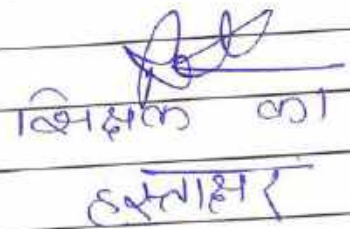 शिक्षक का
हस्ताक्षर